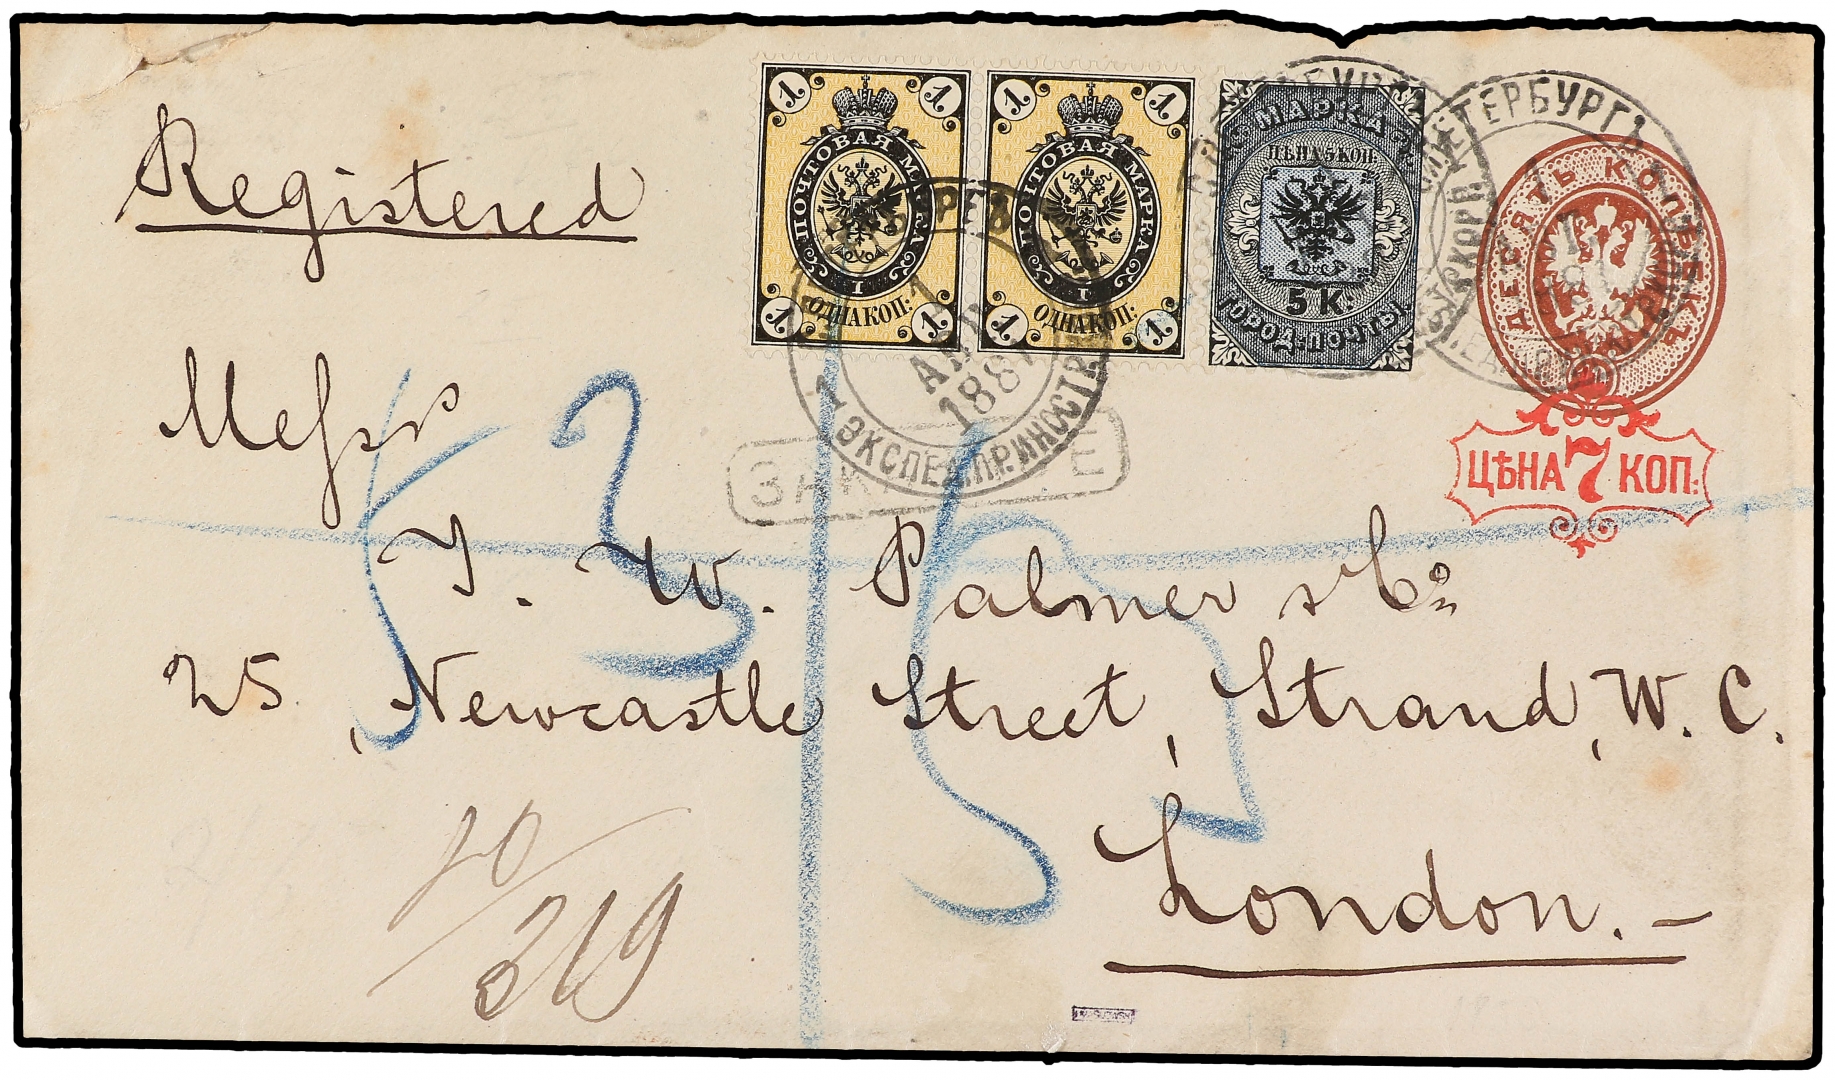 Registered
1 1
ПОЧТОВАЯ МАРКА
1
ОДНА КОП:
1 1
1 1
ПОЧТОВАЯ МАРКА
1
ОДНА КОП:
1 1
МАРКА
ЦѢНА 5 КОП:
5 К:
ГОРОД. ПОЧТЫ.
ПЕТЕРБУРГЪ
ДЕСЯТЬ КОПѢЕКЪ
ЦѢНА 7 КОП:
1
АПР
188
1 ЭКСПЕД. ПР. ИНОСТР.
ЗАК Е
Messrs
T. W. Palmer & Co
25, Newcastle Street, Strand, W. C.
London.-
535
10/319